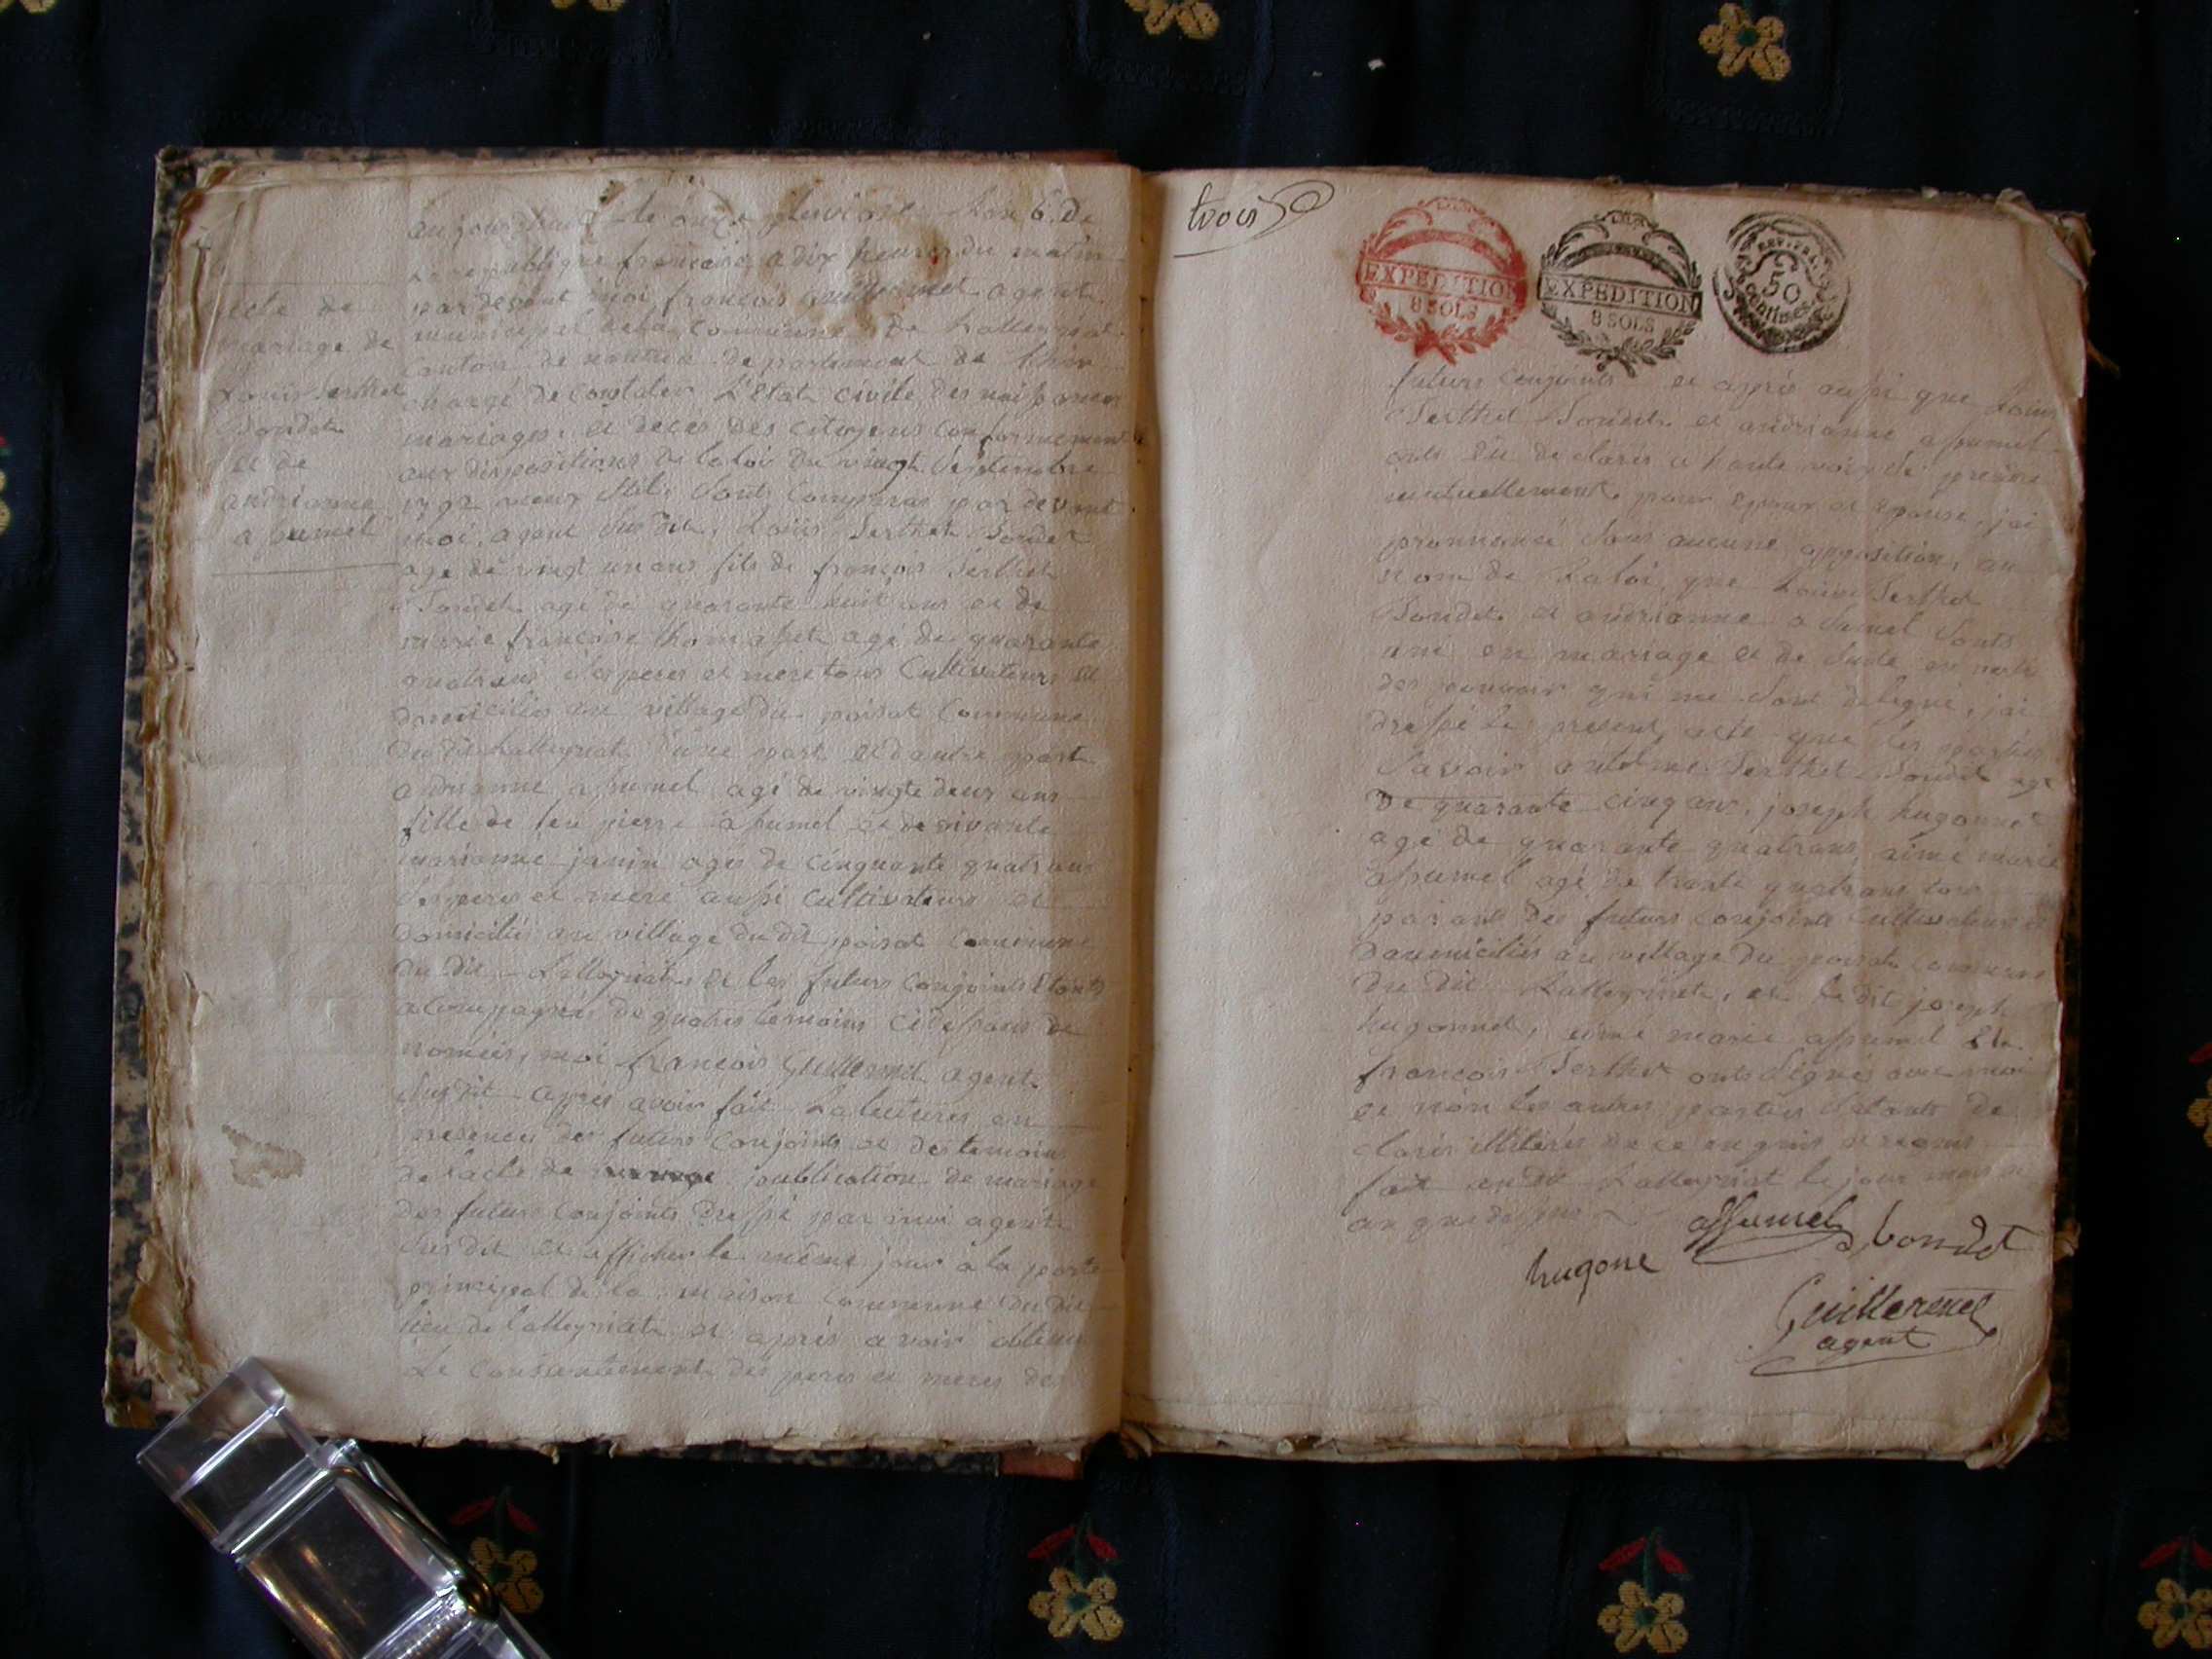 acte de
mariage de
Louis Serthet
Bondet
et de
andrianne
assumel
aujourd'hui le onze pluviose Lan 6 de
La republique francoise a dix heures du matin
par devant moi francois Guillermet agent
municipal de la commune de Lalleyriat
canton de nantua departement de Lhin
chargé de constater L'Etat civile des naissances
mariages, et deces des citoyens conformement
aux dispositions de la loi du vingt Septembre
1792 vieux stile sont comparus par devant
moi, agent susdit, Louis Serthet Bondet
agé de vingt un ans fils de francois Serthet
Bondet agé de quarante huit ans et de
marie francoise thomasset agé de quarante
quatr ans ses peres et mere tous cultivateurs et
domiciliés au village du poisat commune
du dit Lalleyriat d'une part et d'autre part
andrianne assumel agé de vingte deux ans
fille de feu pierre assumel et de vivante
marianne janin agés de cinquante quatr ans
ses peres et mere aussi cultivateurs et
domiciliés au village du dit poisat commune
du dit Lalleyriat et les futurs conjoints Etants
acompagnés de quatres temoins cidessous de
nomées, moi francois Guillermet agent
susdit apres avoir fait La lectures en
presences des futurs conjoints et des temoins
de l'acte de publication de mariage
des futurs conjoints dressé par moi agent
susdit et afficher le même jour a la porte
principal de la maison commune du dit
lieu de Lalleyriat et aprés avoir obtenu
Le consentement des peres et meres des
trois
EXPEDITION
8 SOLS
EXPEDITION
8 SOLS
50
centimes
futurs conjoints et aprés aussi que Louis
Serthet Bondet et andrianne assumel
onts eu declarés a haute voix se prendre
mutuellement pour Epoux et Epouse, jai
prononcé sans aucune opposition, au
nom de La loi, que Louis Serthet
Bondet et andrianne assumel sonts
uni en mariage et de suite en vertu
des pouvoir qui me sont delegué, jai
dressé le present acte que les parties
Savoir antoine Serthet Bondet agé
De quarante cinq ans, joseph hugonnet
agé de quarante quatrans, aimé marie
assumel agé de trente quatrans tous
parant des futurs conjoints cultivateurs et
domiciliés au village du poisat commune
du dit Lalleyriat, et le dit joseph
hugonnet, aimé marie assumel Et
francois Serthet onts signés avec moi
et non les autres parties Etants de
clarés illiterés de ce enquis et requis
fait au dit Lalleyriat le jour mois et
an que dessus
assumel bondet
hugone
Guillermet
agent